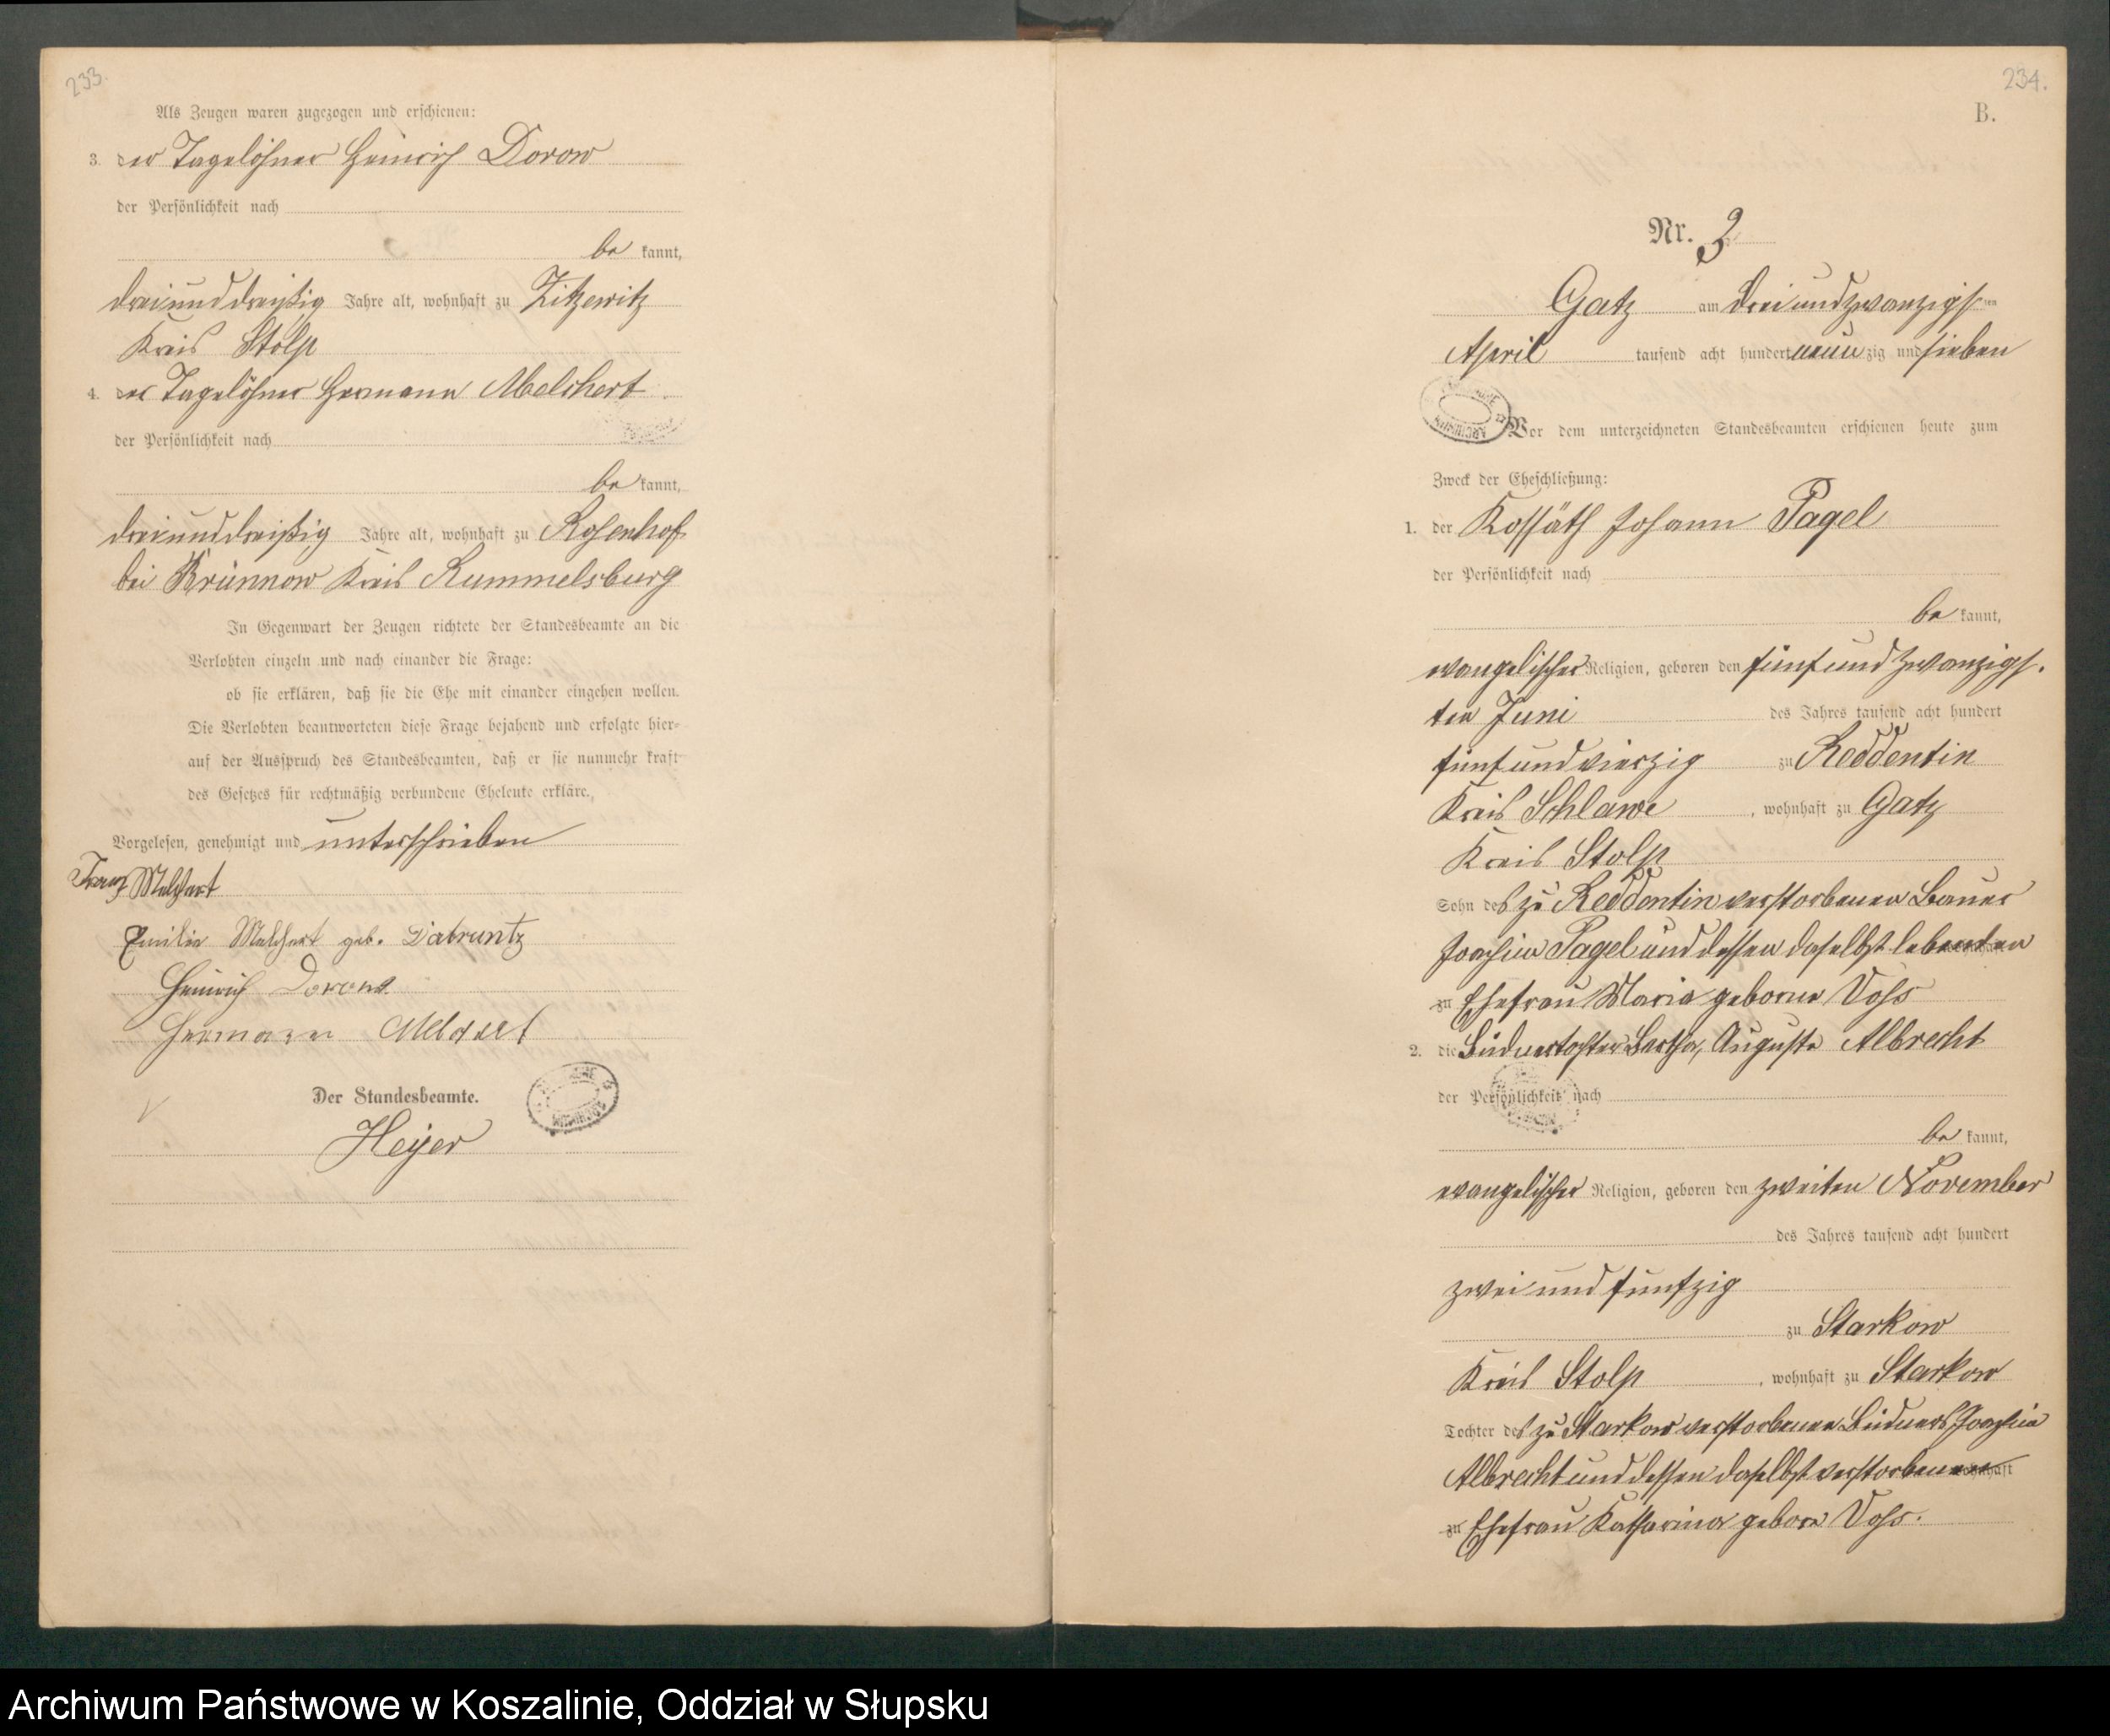 233.
Als Zeugen waren zugezogen und erschienen:
3. der Tagelöhner Heinrich Dorow
der Persönlichkeit nach
be kannt,
dreiunddreißig Jahre alt, wohnhaft zu Zitzewitz
Kreis Stolp
4. der Tagelöhner Hermann Melchert
der Persönlichkeit nach
be kannt,
dreiunddreißig Jahre alt, wohnhaft zu Rosenhof
bei Brünnow Kreis Rummelsburg
In Gegenwart der Zeugen richtete der Standesbeamte an die
Verlobten einzeln und nach einander die Frage:
ob sie erklären, daß sie die Ehe mit einander eingehen wollen.
Die Verlobten beantworteten diese Frage bejahend und erfolgte hier-
auf der Ausspruch des Standesbeamten, daß er sie nunmehr kraft
des Gesetzes für rechtmäßig verbundene Eheleute erkläre.
Vorgelesen, genehmigt und unterschrieben
Franz Melchert
Emilie Melchert geb. Datruntz
Heinrich Dorow
Hermann Melchert
Der Standesbeamte.
Heyer
234.
B.
Nr. 3
Gatz am dreiundzwanzigsten
April tausend acht hundert neunzig und sieben
Vor dem unterzeichneten Standesbeamten erschienen heute zum
Zweck der Eheschließung:
1. der Kossäth Johann Pagel
der Persönlichkeit nach
be kannt,
evangelischer Religion, geboren den fünfundzwanzigs-
ten Juni des Jahres tausend acht hundert
fünfundvierzig zu Reddentin
Kreis Schlawe, wohnhaft zu Gatz
Kreis Stolp
Sohn des zu Reddentin verstorbenen Bauer
Joachim Pagel und dessen daselbst lebenden
zu Ehefrau Maria geborne Voss
2. die Büdnertochter Bertha, Auguste Albrecht
der Persönlichkeit nach
be kannt,
evangelischer Religion, geboren den zweiten November
des Jahres tausend acht hundert
zwei und fünfzig
zu Starkow
Kreis Stolp, wohnhaft zu Starkow
Tochter des zu Starkow verstorbenen Büdners Joachim
Albrecht und dessen daselbst verstorbenen wohnhaft
zu Ehefrau Katharina geborn Voss.
Archiwum Państwowe w Koszalinie, Oddział w Słupsku